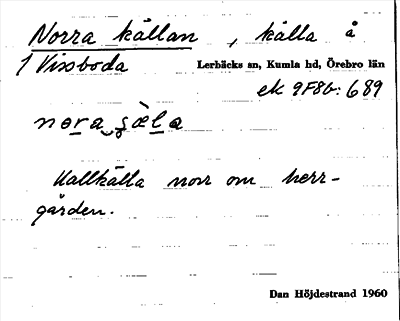 Norra källan, källa å
1 Vissboda Lerbäcks sn, Kumla hd, Örebro län
ek 9F8b:689
Kallkälla norr om herr-
gården.
Dan Höjdestrand 1960